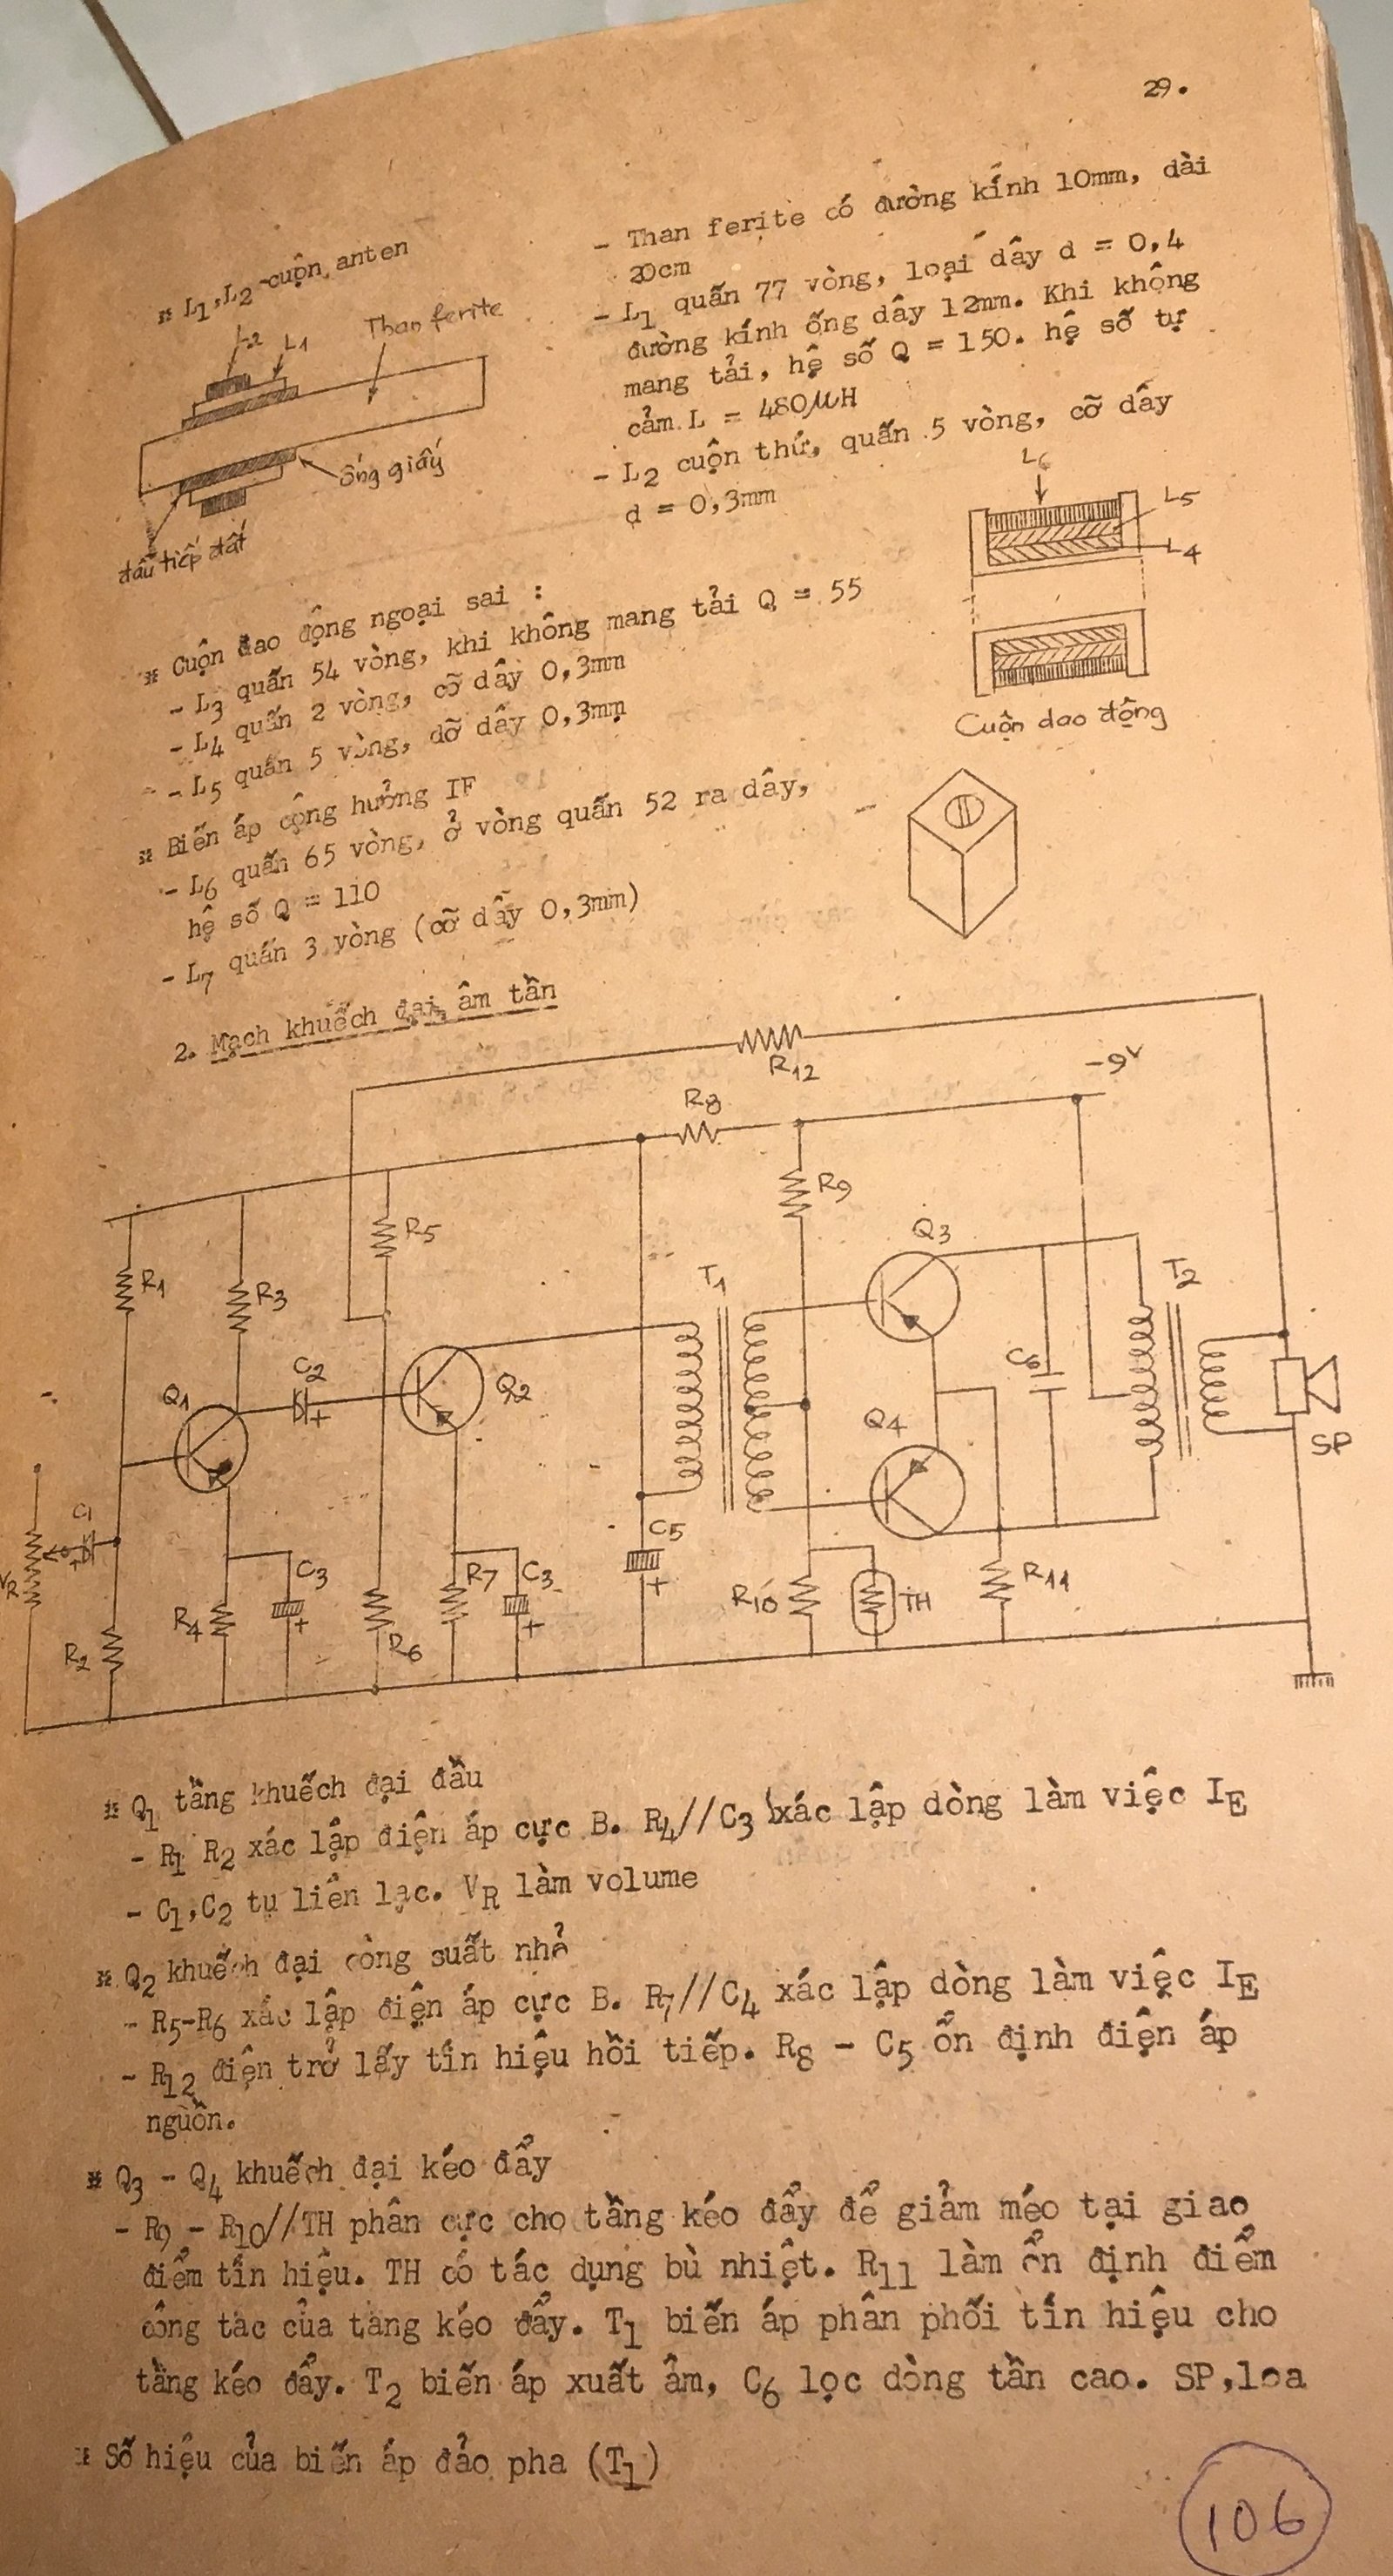 29.
* L1,L2 cuộn anten
L2
L1
Than ferite
ống giấy
đầu tiếp đất
- Than ferite có đường kính 10mm, dài
20cm
- L1 quấn 77 vòng, loại dây d = 0,4
đường kính ống dây 12mm. Khi không
mang tải, hệ số Q = 150. hệ số tự
cảm L = 480µH
- L2 cuộn thứ, quấn 5 vòng, cỡ dây
d = 0,3mm
L6
L5
L4
Cuộn dao động
* Cuộn đao động ngoại sai :
- L3 quấn 54 vòng, khi không mang tải Q = 55
- L4 quấn 2 vòng, cỡ dây 0,3mm
- L5 quấn 5 vòng, dỡ dây 0,3mm
* Biến áp cộng hưởng IF
- L6 quấn 65 vòng, ở vòng quấn 52 ra dây,
hệ số Q = 110
- L7 quấn 3 vòng (cỡ dây 0,3mm)
2. Mạch khuếch đại âm tần
R12
-9V
R8
R9
R5
Q3
R1
R3
T1
T2
C2
C6
Q1
Q2
Q4
SP
C1
C5
VR
C3
R7
C3
R10
TH
R11
R4
R2
R6
* Q1 tầng khuếch đại đầu
- R1 R2 xác lập điện áp cực B. R4//C3 xác lập dòng làm việc IE
- C1,C2 tụ liên lạc. VR làm volume
* Q2 khuếch đại công suất nhỏ
- R5-R6 xác lập điện áp cực B. R7//C4 xác lập dòng làm việc IE
- R12 điện trở lấy tín hiệu hồi tiếp. R8 - C5 ổn định điện áp
nguồn.
* Q3 - Q4 khuếch đại kéo đẩy
- R9 - R10//TH phân cực cho tầng kéo đẩy để giảm méo tại giao
điểm tín hiệu. TH có tác dụng bù nhiệt. R11 làm ổn định điểm
công tác của tầng kéo đẩy. T1 biến áp phân phối tín hiệu cho
tầng kéo đẩy. T2 biến áp xuất âm, C6 lọc dòng tần cao. SP,loa
* Số hiệu của biến áp đảo pha (T1)
106